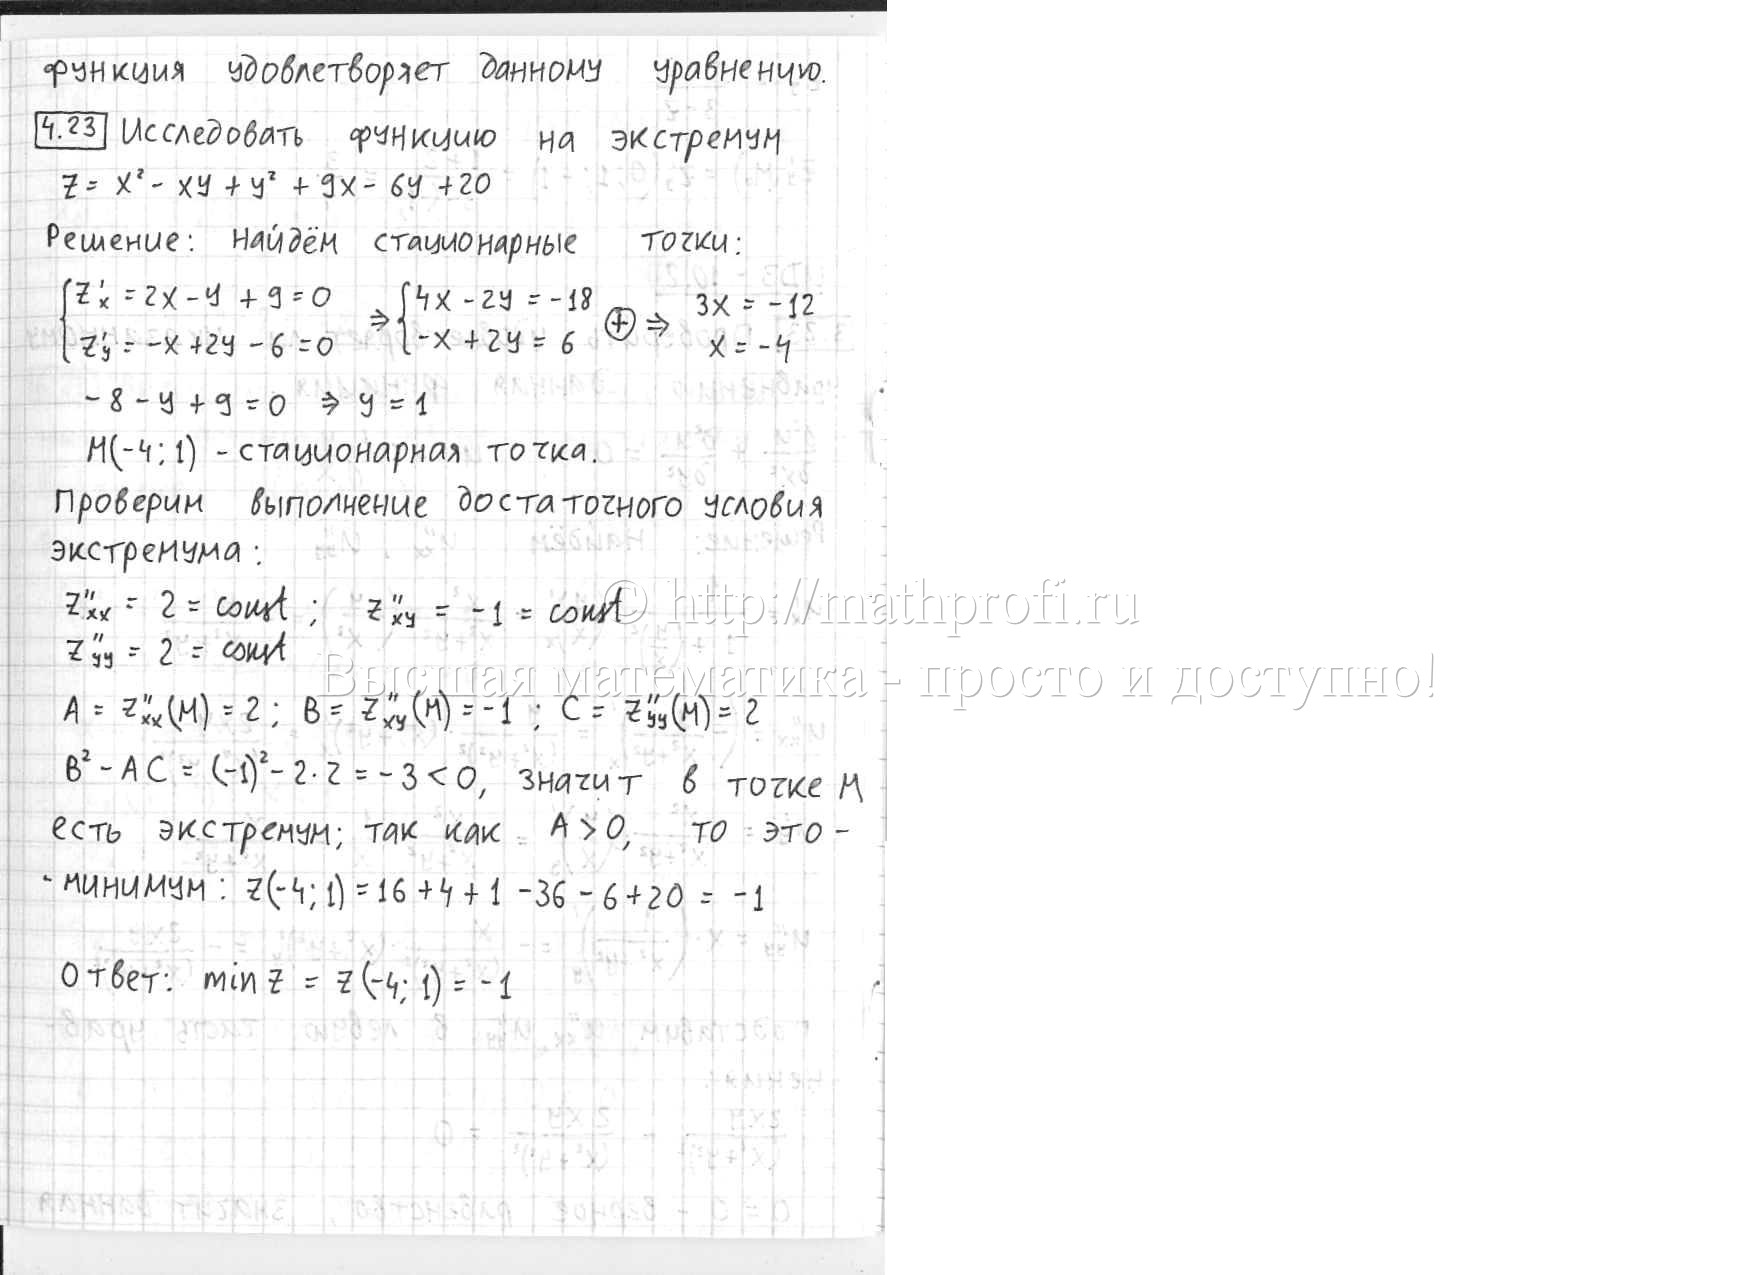 функция удовлетворяет данному уравнению.
4.23 Исследовать функцию на экстремум
z = x² - xy + y² + 9x - 6y + 20
Решение: Найдём стационарные точки:
{ z'x = 2x - y + 9 = 0 ⇒ { 4x - 2y = -18 ⊕ ⇒ 3x = -12
z'y = -x + 2y - 6 = 0 -x + 2y = 6 x = -4
-8 - y + 9 = 0 ⇒ y = 1
M(-4; 1) - стационарная точка.
Проверим выполнение достаточного условия
экстремума:
z''xx = 2 = const ; z''xy = -1 = const
z''yy = 2 = const
© http://mathprofi.ru
Высшая математика - просто и доступно!
A = z''xx(M) = 2 ; B = z''xy(M) = -1 ; C = z''yy(M) = 2
B² - AC = (-1)² - 2·2 = -3 < 0, значит в точке M
есть экстремум; так как A > 0, то это -
- минимум: z(-4; 1) = 16 + 4 + 1 - 36 - 6 + 20 = -1
Ответ: min z = z(-4; 1) = -1